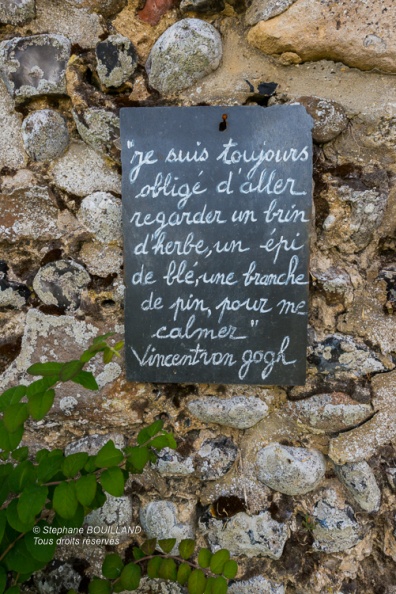 "je suis toujours
obligé d'aller
regarder un brin
d'herbe, un épi
de blé, une branche
de pin, pour me
calmer"
Vincent van gogh
© Stephane BOUILLAND
Tous droits réservés